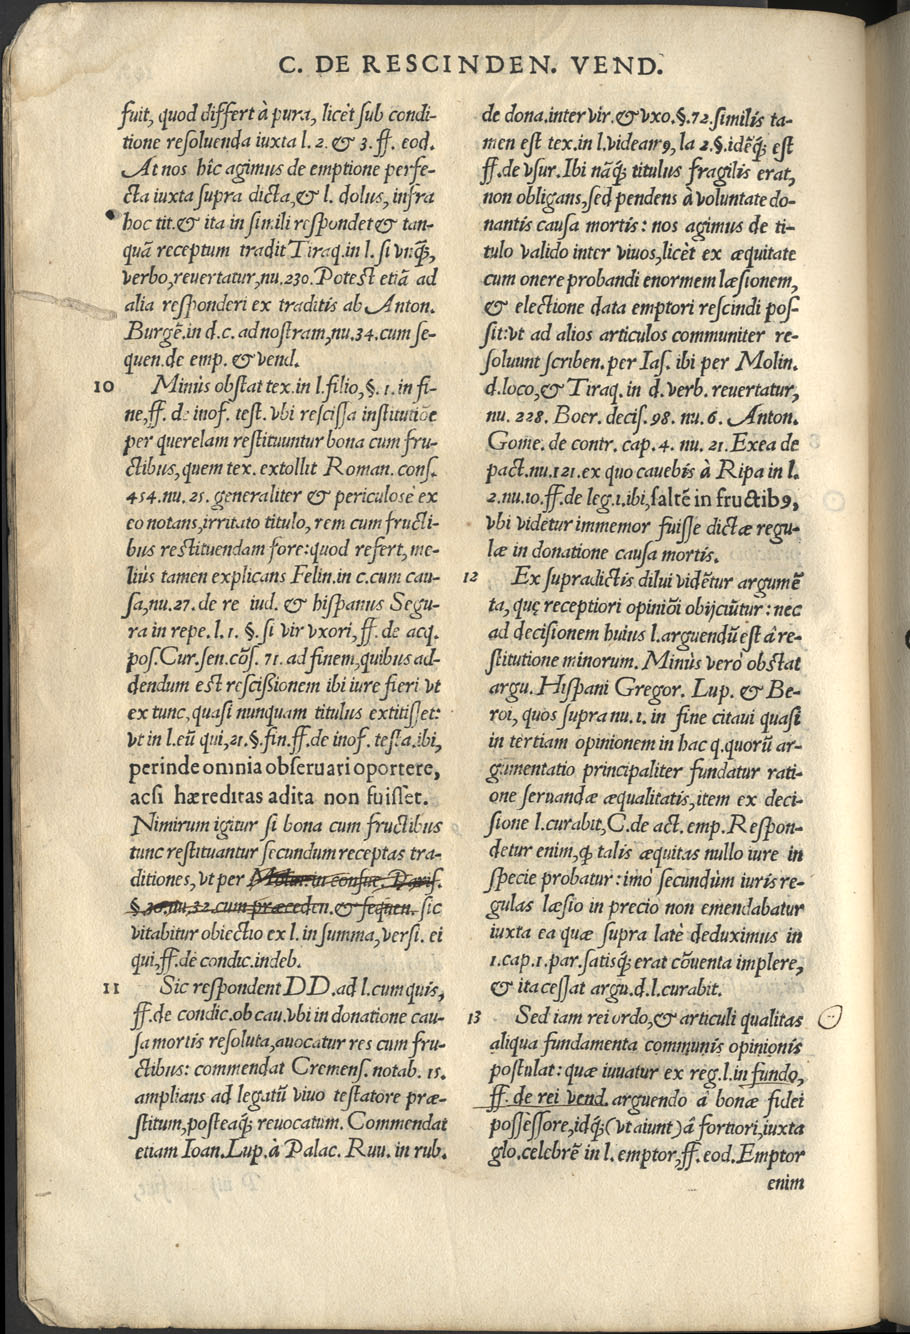 C. DE RESCINDEN. VEND.
fuit, quod differt à pura, licèt sub condi-
tione resoluenda iuxta l. 2. & 3. ff. eod.
At nos hîc agimus de emptione perfe-
cta iuxta supra dicta, & l. dolus, infra
hoc tit. & ita in simili respondet & tan-
quã receptum tradit Tiraq. in l. si vnq̃,
verbo, reuertatur, nu. 230. Potest etiã ad
alia responderi ex traditis ab Anton.
Burgẽ. in d. c. ad nostram, nu. 34. cum se-
quen. de emp. & vend.
10 Minùs obstat tex. in l. filio, §. 1. in fi-
ne, ff. de inof. test. vbi rescissa institutiõe
per querelam restituuntur bona cum fru-
ctibus, quem tex. extollit Roman. cons.
454. nu. 25. generaliter & periculosè ex
eo notans, irritato titulo, rem cum fructi-
bus restituendam fore: quod refert, me-
liùs tamen explicans Felin. in c. cum cau-
sa, nu. 27. de re iud. & hispanus Segu-
ra in repe. l. 1. §. si vir vxori, ff. de acq.
pos. Cur. sen. cõs. 71. ad finem, quibus ad-
dendum est rescißionem ibi iure fieri vt
ex tunc, quasi nunquam titulus extitisset:
vt in l. eũ qui, 21. §. fin. ff. de inof. testa. ibi,
perinde omnia obseruari oportere,
acsi hæreditas adita non fuisset.
Nimirum igitur si bona cum fructibus
tunc restituantur secundum receptas tra-
ditiones, vt per Molin. in consue. Paris.
§. 30. nu. 32. cum præceden. & sequen. sic
vitabitur obiectio ex l. in summa, versi. ei
qui, ff. de condic. indeb.
11 Sic respondent DD. ad l. cum quis,
ff. de condic. ob cau. vbi in donatione cau-
sa mortis resoluta, auocatur res cum fru-
ctibus: commendat Cremens. notab. 15.
amplians ad legatũ viuo testatore præ-
stitum, posteaq̃ reuocatum. Commendat
etiam Ioan. Lup. à Palac. Ruu. in rub.
de dona. inter vir. & vxo. §. 72. similis ta-
men est tex. in l. videamꝰ, la 2. §. idẽq̃ est
ff. de vsur. Ibi nãq̃ titulus fragilis erat,
non obligans, sed pendens à voluntate do-
nantis causa mortis: nos agimus de ti-
tulo valido inter viuos, licèt ex æquitate
cum onere probandi enormem læsionem,
& electione data emptori rescindi pos-
sit: vt ad alios articulos communiter re-
soluunt scriben. per Ias. ibi per Molin.
d. loco, & Tiraq. in d. verb. reuertatur,
nu. 228. Boer. decis. 98. nu. 6. Anton.
Gome. de contr. cap. 4. nu. 21. Exea de
pact. nu. 121. ex quo cauebis à Ripa in l.
2. nu. 10. ff. de leg. 1. ibi, saltẽ in fructibꝰ,
vbi videtur immemor fuisse dictæ regu-
læ in donatione causa mortis.
12 Ex supradictis dilui vidẽtur argumẽ
ta, quę receptiori opiniõi obijciũtur: nec
ad decisionem huius l. arguendũ est à re-
stitutione minorum. Minùs verò obstat
argu. Hispani Gregor. Lup. & Be-
roi, quos supra nu. 1. in fine citaui quasi
in tertiam opinionem in hac q. quorũ ar-
gumentatio principaliter fundatur rati-
one seruandæ æqualitatis, item ex deci-
sione l. curabit, C. de act. emp. Respon-
detur enim, q̃ talis æquitas nullo iure in
specie probatur: imò secundùm iuris re-
gulas læsio in precio non emendabatur
iuxta ea quæ supra latè deduximus in
1. cap. 1. par. satisq̃ erat cõuenta implere,
& ita cessat argu. d. l. curabit.
13 Sed iam rei ordo, & articuli qualitas
aliqua fundamenta communis opinionis
postulat: quæ iuuatur ex reg. l. in fundo,
ff. de rei vend. arguendo à bonæ fidei
possessore, idq̃ (vt aiunt) à fortiori, iuxta
glo. celebrẽ in l. emptor, ff. eod. Emptor
enim